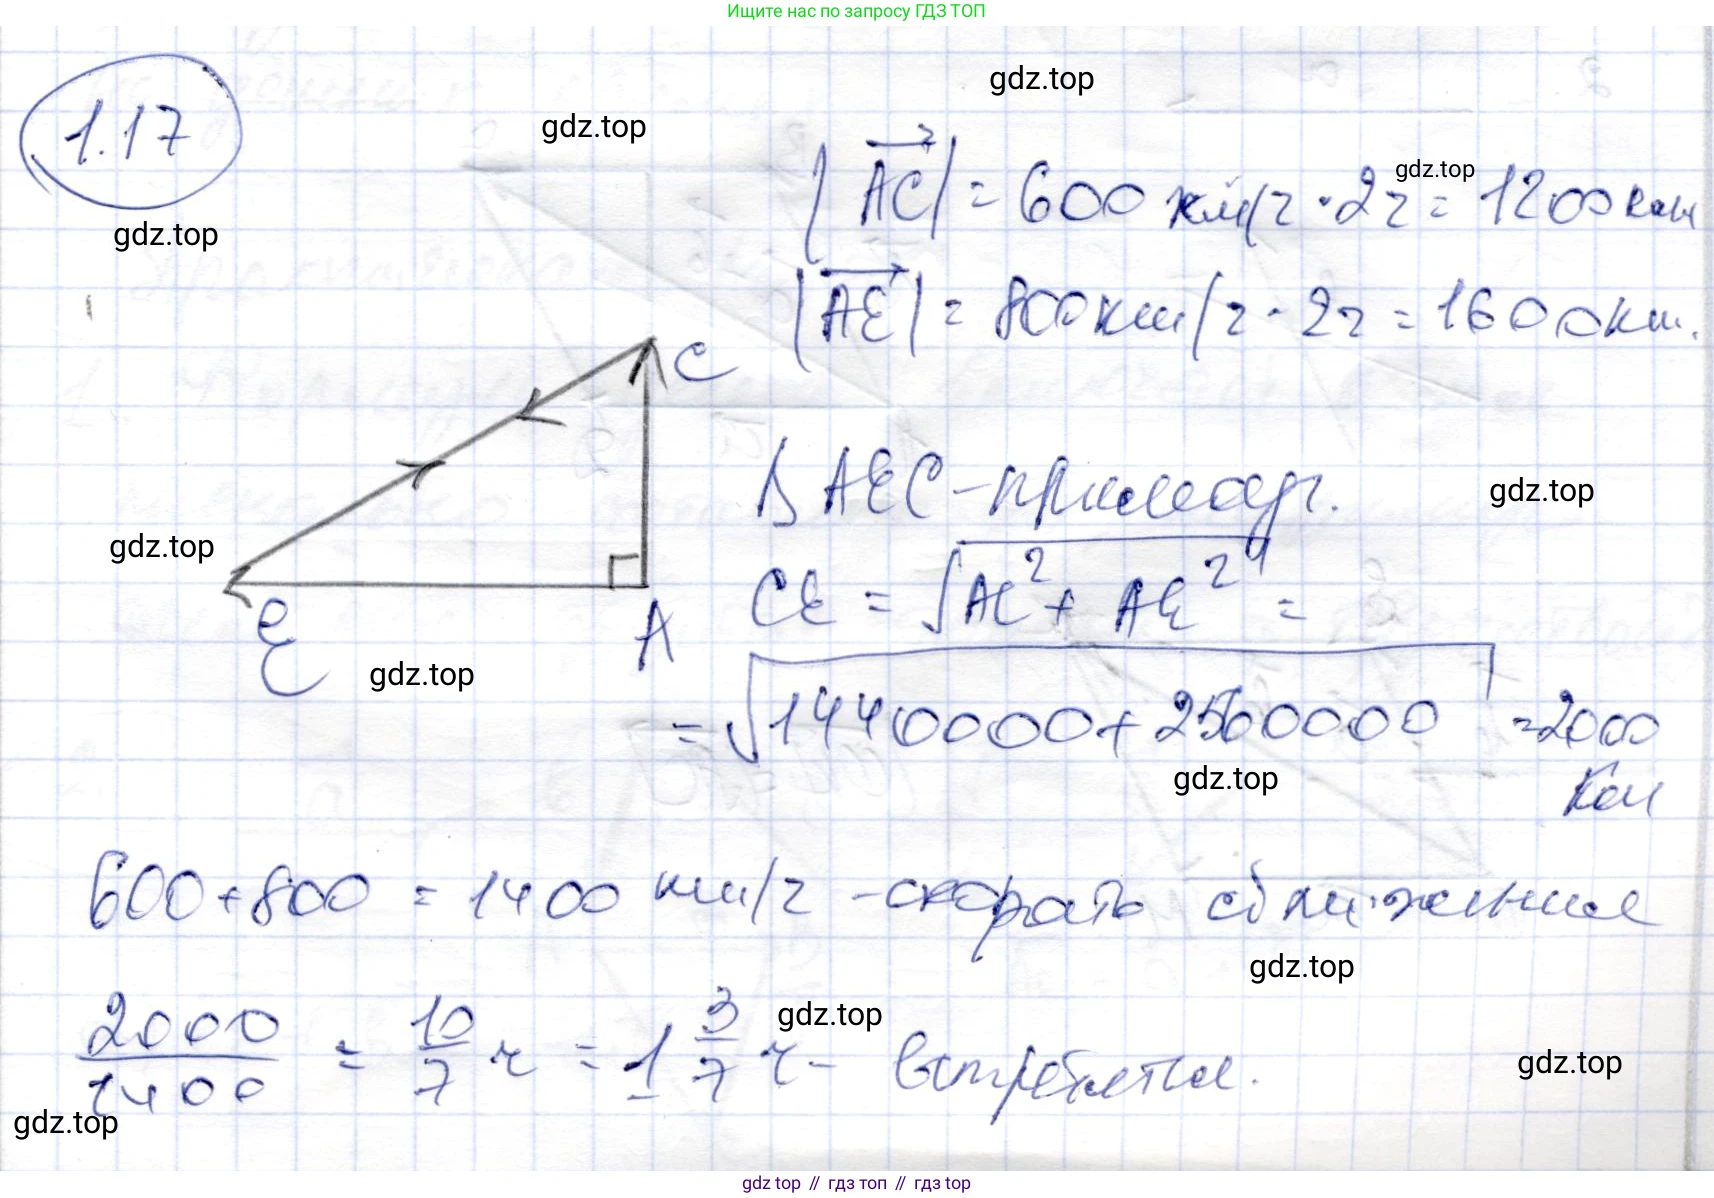 Ищите нас по запросу ГДЗ ТОП
1.17
gdz.top
gdz.top
gdz.top
gdz.top
|AC| = 600 км/ч · 2ч = 1200 км
|AE| = 800 км/ч · 2ч = 1600 км.
C
E
A
gdz.top
gdz.top
gdz.top
Δ AEC - прямоуг.
CE = √AC² + AE² =
= √1440000 + 2560000 = 2000
км
gdz.top
600 + 800 = 1400 км/ч - скорость сближения
gdz.top
2000/1400 = 10/7 ч = 1 3/7 ч - встретятся.
gdz.top
gdz.top
gdz.top
gdz.top // гдз топ // гдз top